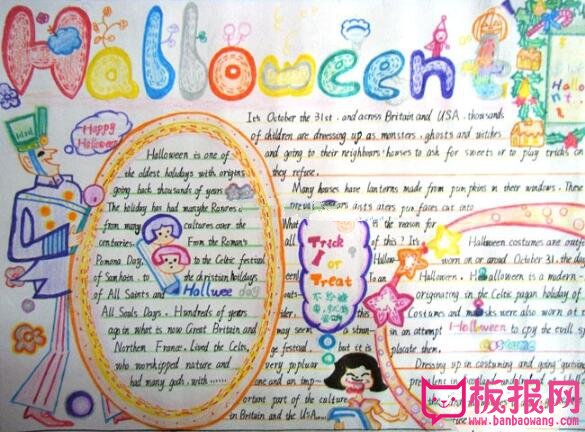 Halloween
Happy
Halloween
Halloween is one of
the oldest holidays with origins
going back thousands of years
The holiday has had
from many cultures over the
centuries. From the Roman's
Pomona Day, to the Celtic festival
of Samhain, to the christian holidays
of All Saints and
All Souls Days. Hundreds of years
again in what is now Great Britain and
Northern France. Lived the Celts.
who worshipped nature and
had many gods, with ......
It's October the 31st. and across Britain and USA. thousands
of children are dressing up as monsters. ghosts and witches
and going to their neighbours' houses to ask for sweets or to play tricks on
they refuse.
Many houses have lanterns made from pumpkins in their windows. These
faces cut into
What is the reason for
all of this? It's
Trick
or
Treat
不给糖
may seem a stran-
ge festival. but it is
very popluar
one and an imp-
ortant part of the culture
in Britain and the USA.
Halloween costumes are out
worn on or aroud October 31, the day
Halloween. Halloween is a modern-
originating in the Celtic pagan holiday of
Costumes and masks were also worn at
in an attempt to copy the evil sp
placate them.
Dressing up in costuming and going "guising
板报网
www.banbaowang.com